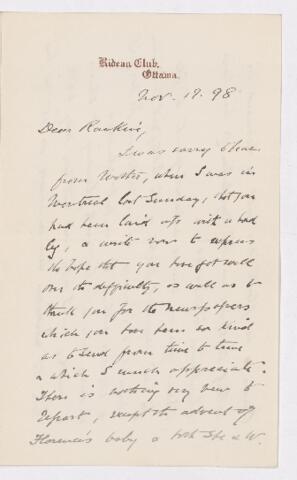 Rideau Club,
Ottawa.
Nov. 19. 98
Dear Rankin,
I was sorry to hear
from Wotte, when I was in
Montreal last Sunday, that you
had been laid up with a bad
leg, & write now to express
the hope that you have got well
over the difficulty, as well as to
thank you for the newspapers
which you have been so kind
as to send from time to time
& which I much appreciate.
There is nothing very new to
report, except the advent of
Florence's baby & both she & W.